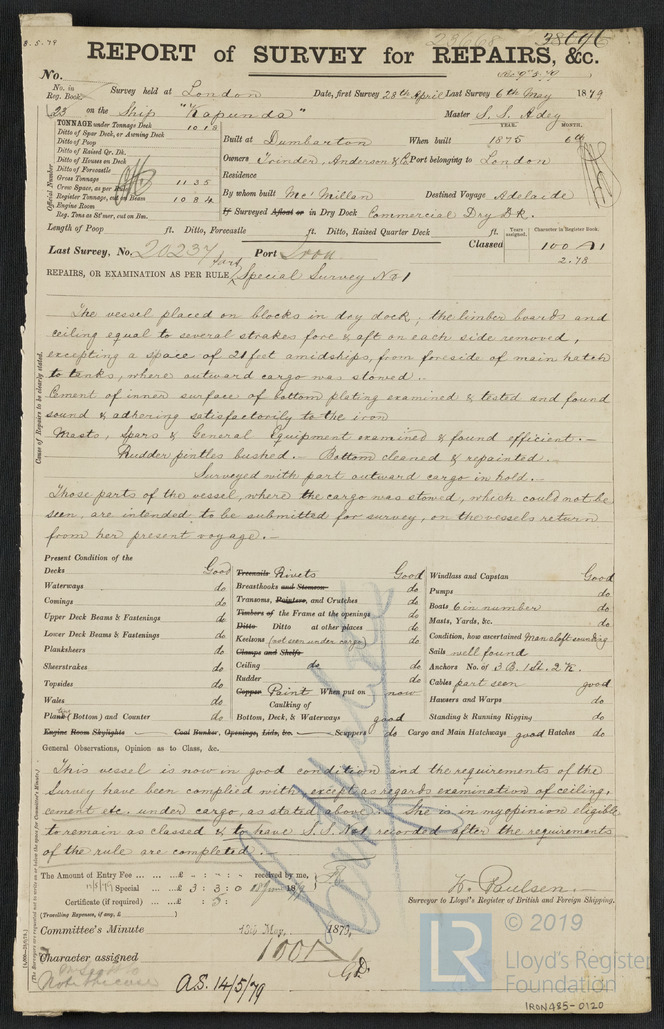 8.5.79
23668 38696
REPORT of SURVEY for REPAIRS, &c.
No.
No. in Reg. Book Survey held at London Date, first Survey 28th April Last Survey 6th May 1879
23 on the Ship "Kapunda" Master S. S. Adey
TONNAGE under Tonnage Deck 1018
Ditto of Spar Deck, or Awning Deck
Ditto of Poop
Ditto of Raised Qr. Dk.
Ditto of Houses on Deck
Ditto of Forecastle
Gross Tonnage 1135
Crew Space, as per
Register Tonnage, cut on Beam 1084
Engine Room
Reg. Tons as St'mer, cut on Bm.
Official Number
YEAR. MONTH.
Built at Dumbarton When built 1875 6th
Owners Trinder, Anderson & Co Port belonging to London
Residence
By whom built McMillan Destined Voyage Adelaide
If Surveyed Afloat or in Dry Dock Commercial Dry Dk.
Length of Poop ft. Ditto, Forecastle ft. Ditto, Raised Quarter Deck ft.
Years assigned. Character in Register Book.
Last Survey, No. 20237 Port Iron Classed 100 A 1
2.78
REPAIRS, OR EXAMINATION AS PER RULE, Part Special Survey No 1
The vessel placed on blocks in dry dock, the limber boards and
ceiling equal to several strakes fore & aft on each side removed,
excepting a space of 21 feet amidships, from foreside of main hatch
to tanks, where outward cargo was stowed.
Cement of inner surface of bottom plating examined & tested and found
sound & adhering satisfactorily to the iron
Masts, Spars & General Equipment examined & found efficient.—
Rudder pintles bushed.— Bottom cleaned & repainted.—
Surveyed with part outward cargo in hold.—
Those parts of the vessel, where the cargo was stowed, which could not be
seen, are intended to be submitted for survey, on the vessels return
from her present voyage.—
Cause of Repairs to be clearly stated.
Present Condition of the
Decks Good
Waterways do
Comings do
Upper Deck Beams & Fastenings do
Lower Deck Beams & Fastenings do
Planksheers do
Sheerstrakes do
Topsides do
Wales do
Plating (Bottom) and Counter do
Engine Room Skylights Coal Bunker, Openings, Lids, &c. Scuppers do
Treenails Rivets Good
Breasthooks and Stemson do
Transoms, Pointers, and Crutches do
Timbers of the Frame at the openings do
Ditto Ditto at other places do
Keelsons (not seen under cargo) do
Clamps and Shelfs
Ceiling do do
Rudder do
Copper Paint When put on now
Caulking of
Bottom, Deck, & Waterways good
Windlass and Capstan Good
Pumps do
Boats 6 in number do
Masts, Yards, &c. do
Condition, how ascertained Man aloft sounding
Sails well found
Anchors No. of 3 B. 1 St. 2 K.
Cables part seen good
Hawsers and Warps do
Standing & Running Rigging do
Cargo and Main Hatchways good Hatches do
General Observations, Opinion as to Class, &c.
This vessel is now in good condition and the requirements of the
Survey have been complied with except as regards examination of ceiling,
cement etc. under cargo, as stated above.— She is in my opinion eligible
to remain as classed & to have S.S. No 1 recorded after the requirements
of the rule are completed.—
The Amount of Entry Fee £ : : received by me,
Special £ 3 : 3 : 0 187
Certificate (if required) : 5 :
(Travelling Expenses, if any, £ )
W. Paulsen.—
Surveyor to Lloyd's Register of British and Foreign Shipping.
Committee's Minute 13th May, 1879,
Character assigned 100 A
A.S. 14/5/79
Note the case
© 2019
LR
Lloyd's Register
Foundation
IRON485-0120